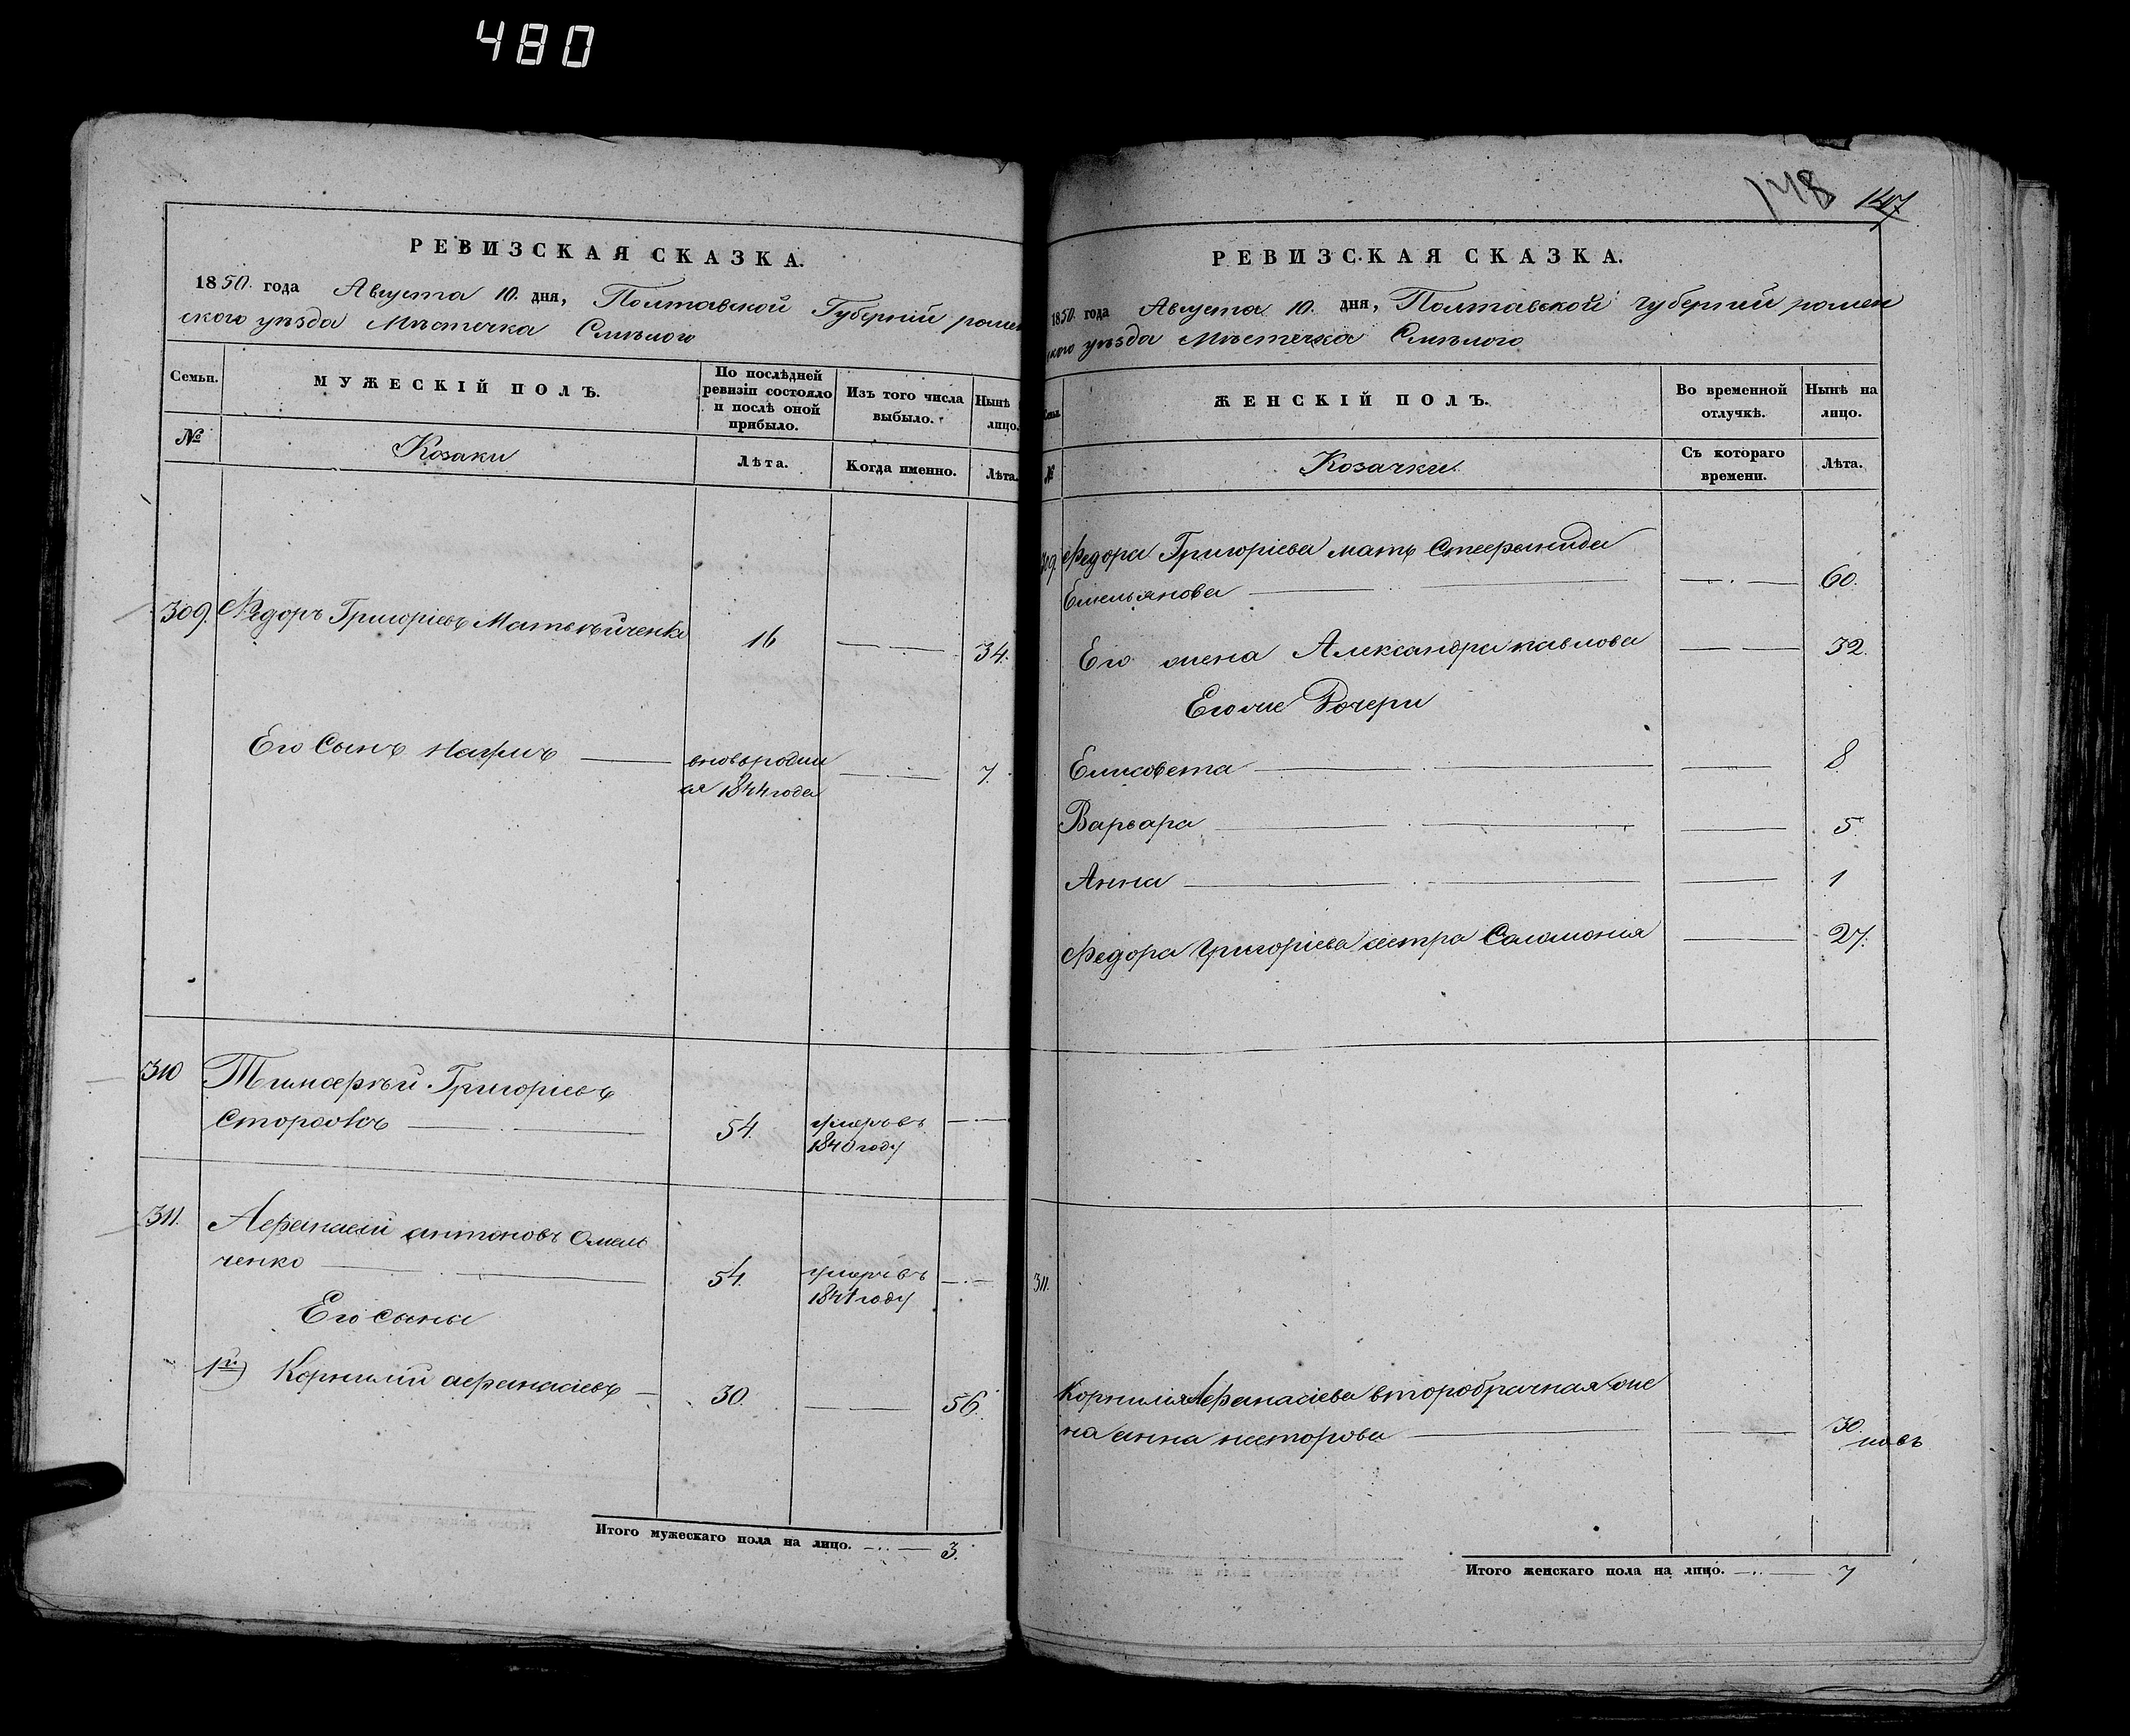 480
РЕВИЗСКАЯ СКАЗКА.
1850 года Августа 10. дня, Полтавской Губерніи ромен
ского уѣзда Мѣстечка Смѣлого
Семьи.
МУЖЕСКІЙ ПОЛЪ.
По послѣдней ревизіи состояло и послѣ оной прибыло.
Изъ того числа выбыло.
Нынѣ лицо.
№
Козаки
Лѣта.
Когда именно.
Лѣта.
309. Ѳедоръ Григоріевъ 16 — 34.
Его Сынъ Наумъ вновьродил
ся 1844 года — 7.
310 Тимофѣй Григоріевъ
54. умеръ въ
1840 году
311. Афанасій антоновъ Омель
ченко 54. умеръ въ
1841 году
Его сыны
1й) Корнилій афанасіевъ — 30. — 56.
Итого мужескаго пола на лицо. — 3.
148 147
РЕВИЗСКАЯ СКАЗКА.
1850 года Августа 10. дня, Полтавской губерніи ромен
ского уѣзда Мѣстечка Смѣлого
Семьи.
ЖЕНСКІЙ ПОЛЪ.
Во временной отлучкѣ.
Нынѣ на лицо.
№
Козачки
Съ котораго времени.
Лѣта.
309. Федора Григоріева мать Стефанида
Емельянова — 60.
Его жена Александра павлова — 32.
Егоже Дочери
Елисовета — 8
Варвара — 5.
Анна — 1
Федора григоріева сестра Саломонія — 27.
311.
Корнилія Афанасіева второбрачная же
на анна несторова — 30.
Итого женскаго пола на лицо. — 7